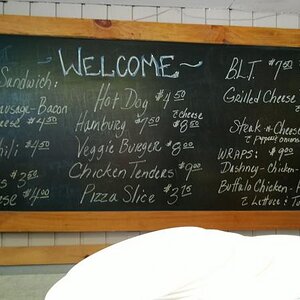 WELCOME
Sandwich:
Sausage-Bacon
Cheese $4.50
Chili: $4.50
$3.50
$4.00
Hot Dog $4.50
Hamburg $7.50 c̄ cheese $8.00
Veggie Burger $8.00
Chicken Tenders $9.00
Pizza Slice $3.75
B.L.T. $7.50
Grilled Cheese
Steak & Cheese
c̄ peppers onions
WRAPS: $9.00
Chicken
Buffalo Chicken
c̄ Lettuce &